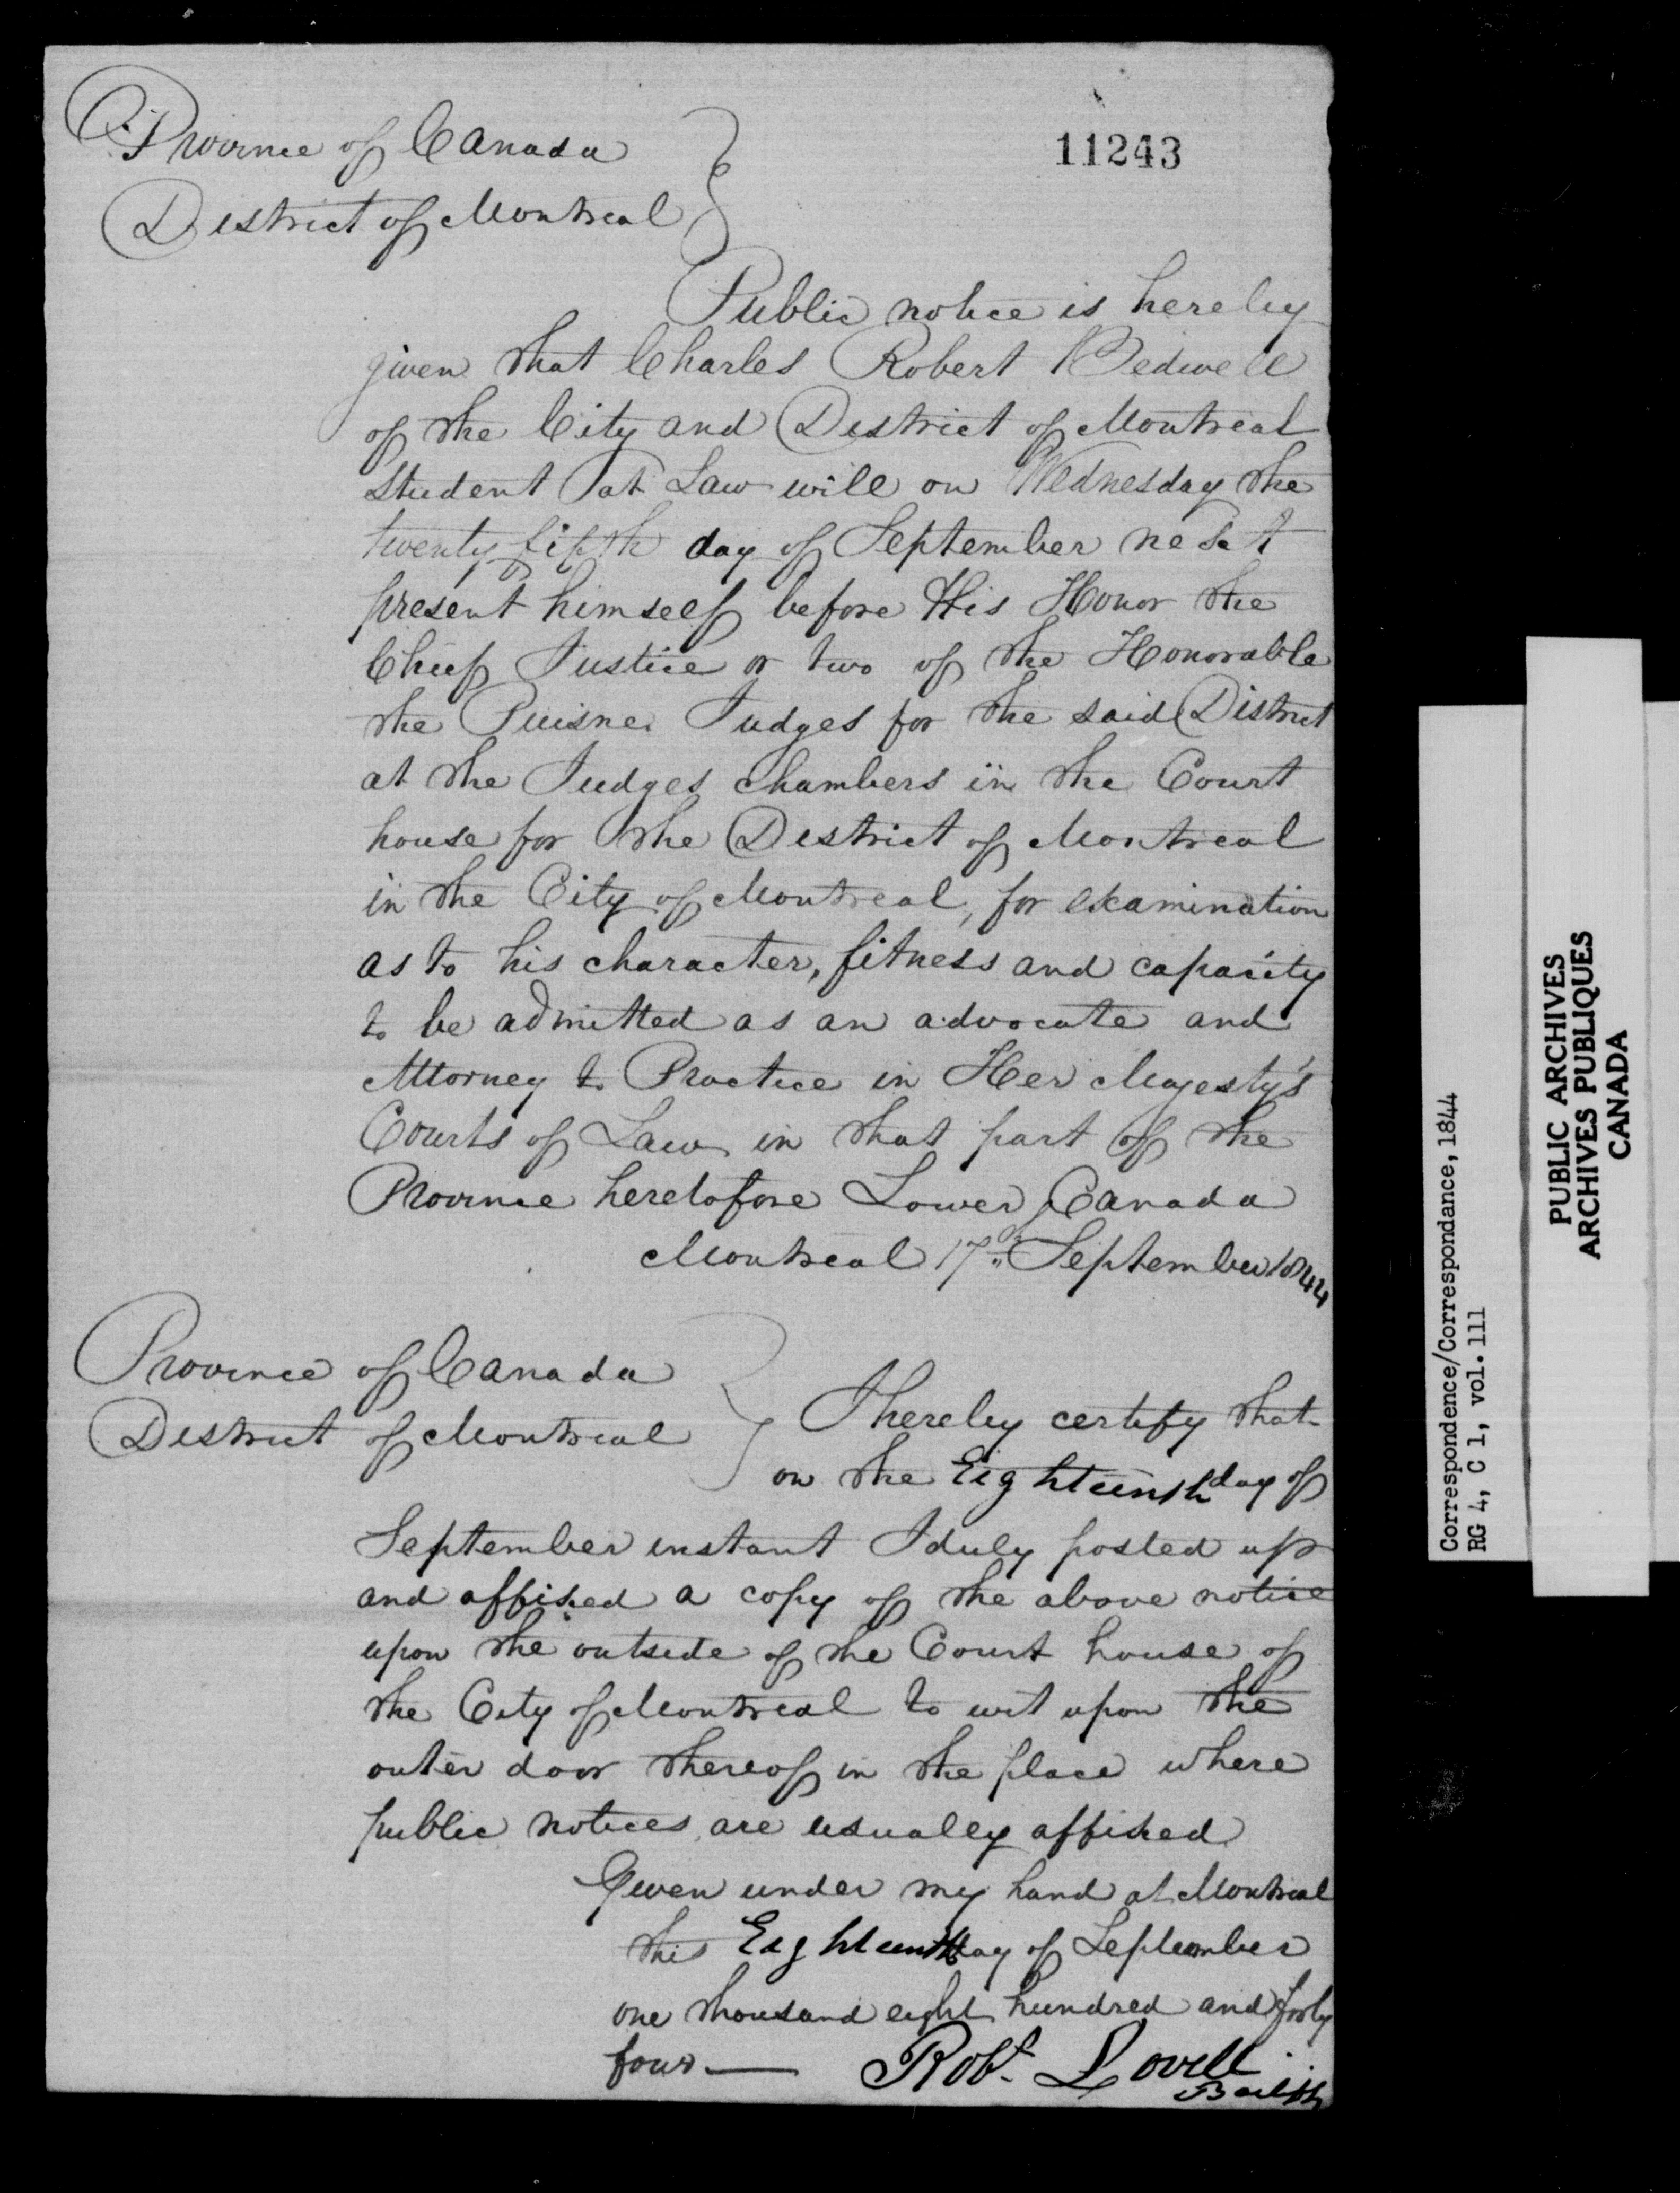 Province of Canada
District of Montreal
11243
Public notice is hereby
given that Charles Robert Bedwell
of the City and District of Montreal
Student at Law will on Wednesday the
twenty fifth day of September next
present himself before His Honor the
Chief Justice or two of the Honorable
the Puisne Judges for the said District
at the Judges chambers in the Court
house for the District of Montreal
in the City of Montreal, for examination
as to his character, fitness and capacity
to be admitted as an advocate and
Attorney to Practice in Her Majesty's
Courts of Law in that part of the
Province heretofore Lower Canada
Montreal 17th September 1844
Province of Canada
District of Montreal
I hereby certify that
on the Eighteenth day of
September instant I duly posted up
and affixed a copy of the above notice
upon the outside of the Court house of
the City of Montreal to wit upon the
outer door thereof in the place where
public notices are usually affixed
Given under my hand at Montreal
this Eighteenth day of September
one thousand eight hundred and forty
four — Robt Lovell
Bailiff
Correspondence/Correspondance, 1844
RG 4, C 1, vol. 111
PUBLIC ARCHIVES
ARCHIVES PUBLIQUES
CANADA